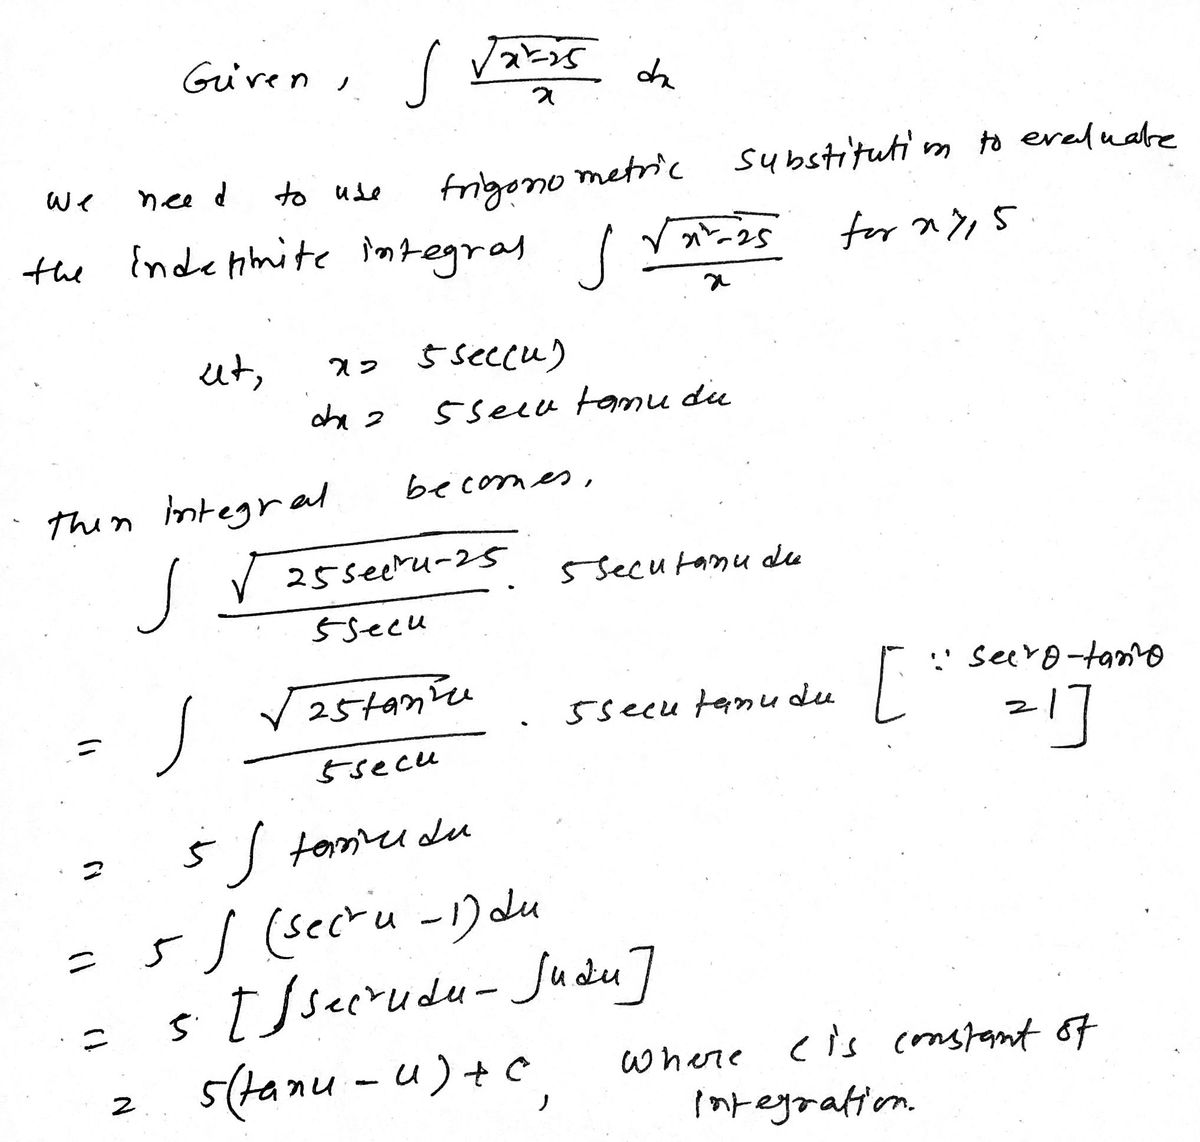 Given, ∫ √(x²-25) / x dx
we need to use trigonometric substitution to evaluate
the indefinite integral ∫ √(x²-25) / x for x ≥ 5.
let, x = 5 sec(u)
dx = 5 sec u tan u du
Then integral becomes,
∫ √(25 sec²u-25) / 5 sec u . 5 sec u tan u du
= ∫ √(25 tan²u) / 5 sec u . 5 sec u tan u du [∵ sec²θ - tan²θ
= 1]
= 5 ∫ tan²u du
= 5 ∫ (sec²u - 1) du
= 5 [∫ sec²u du - ∫ u du]
= 5(tan u - u) + c, where c is constant of
Integration.